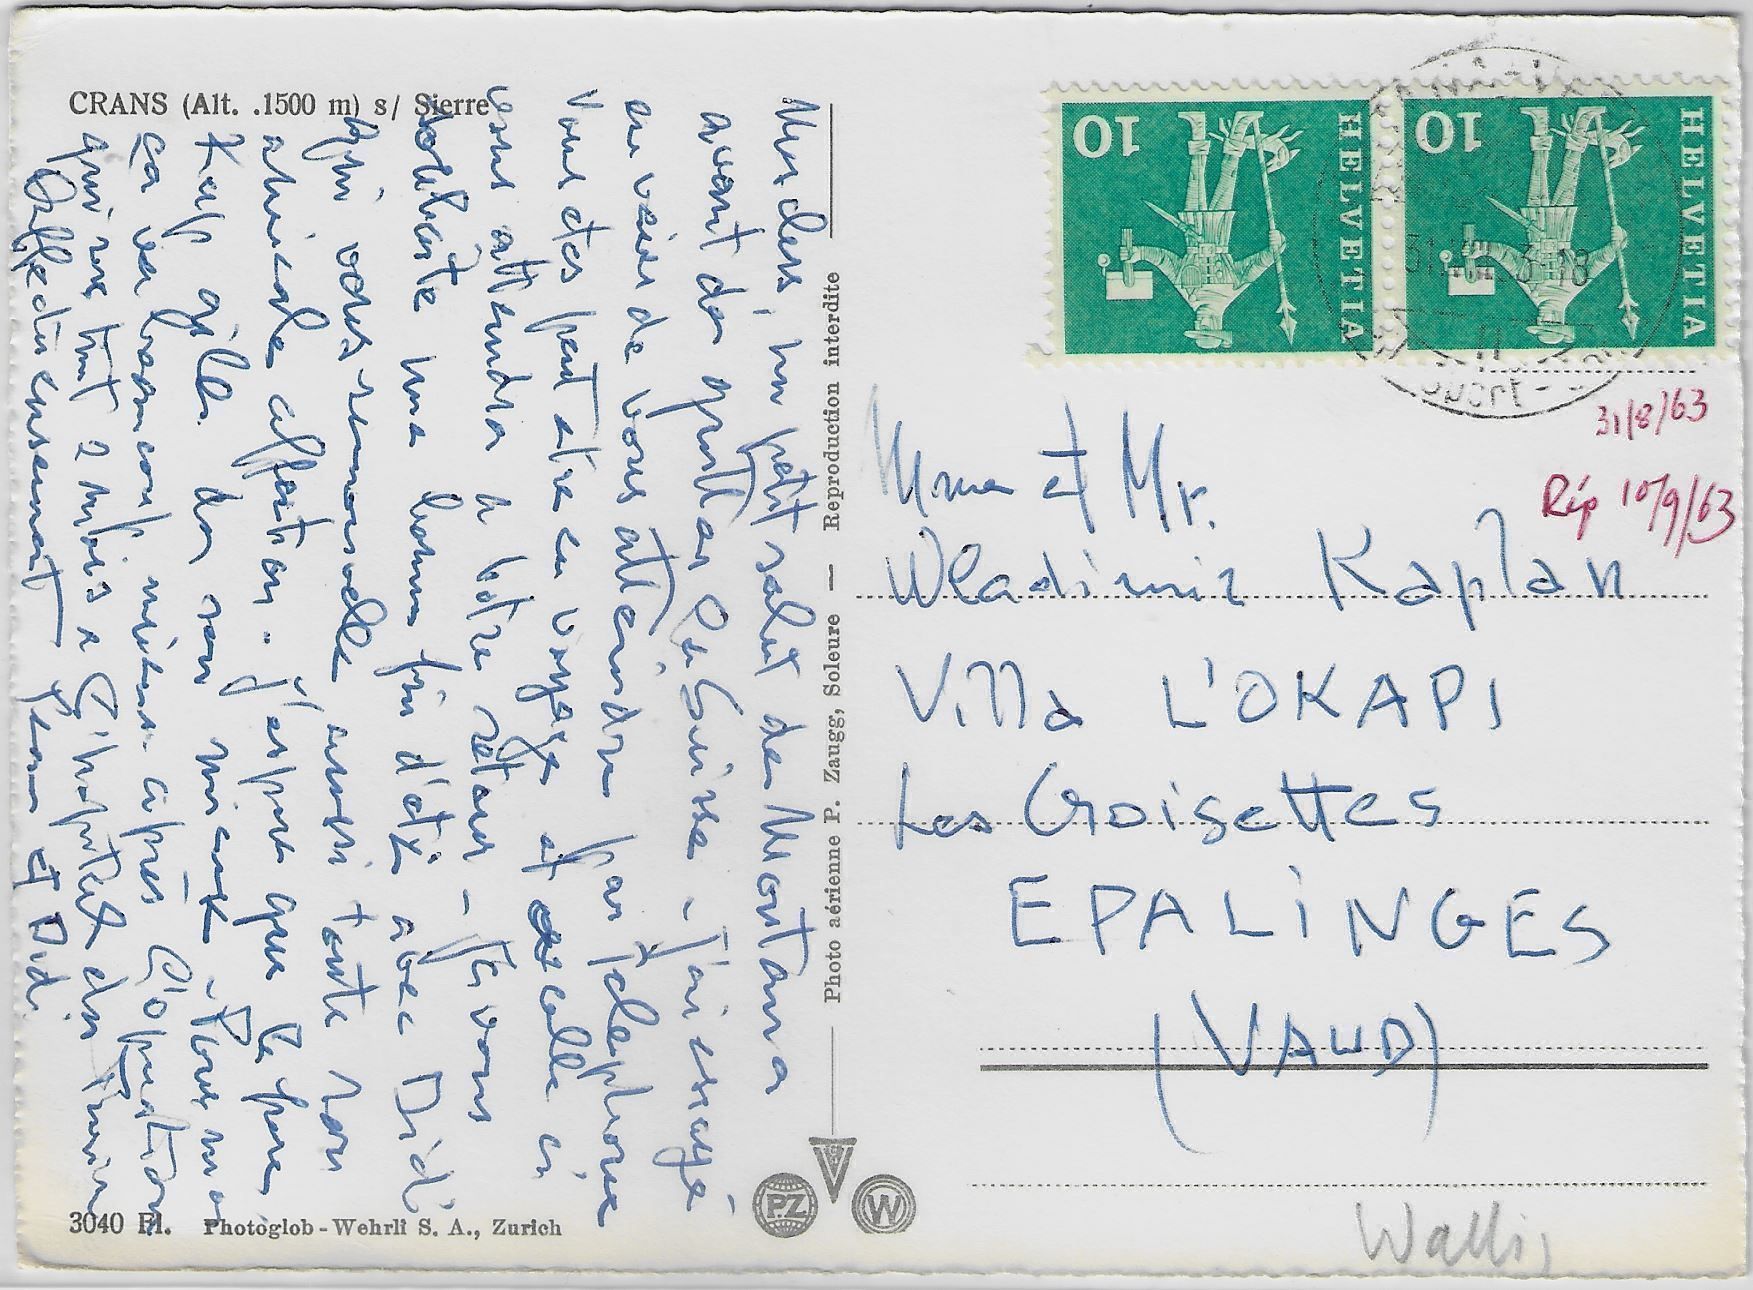 CRANS (Alt. .1500 m) s/ Sierre
un petit salut de Montana
avant de quitter la Suisse - J'ai essayé
en vain de vous atteindre par téléphone
Vous êtes peut être en voyage et celle ci
vous attendra à votre retour - Je vous
souhaite une bonne fin d'été avec Didi
qui vous renouvelle aussi toute son
amicale affection. J'espère que le père
Kap des son mieux Pour moi
ça va beaucoup mieux après l'opération
qui tout 2 mois à l'hôpital de
Affectueusement et Didi
Photo aérienne P. Zaugg, Soleure — Reproduction interdite
HELVETIA
10
HELVETIA
10
31/8/63
Rép 10/9/63
Mme et Mr.
Wladimir Kaplan
Villa L'OKAPI
Les Croisettes
EPALINGES
(VAUD)
PZ
W
3040 Fl. Photoglob-Wehrli S. A., Zurich
Wallis